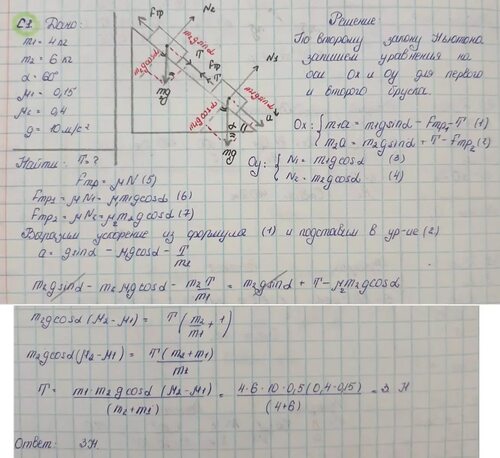 С1 Дано:
m1 = 4 кг
m2 = 6 кг
α = 60°
μ1 = 0,15
μ2 = 0,4
g = 10 м/с²
Найти: T-?
Fтр N2
m2gsinα
T
m2gcosα
T
N1
mg
m1gsinα
m1gcosα
a
α
mg
Решение:
По второму закону Ньютона
запишем уравнения на
оси Ox и Oy для первого
и второго бруска.
Ox: { m1a = m1gsinα - fтр1 - T (1)
m2a = m2gsinα + T - fтр2 (2)
Oy: { N1 = m1gcosα (3)
N2 = m2gcosα (4)
fтр = μN (5)
fтр1 = μN1 = μm1gcosα (6)
fтр2 = μN2 = μ2m2gcosα (7)
Выразим ускорение из формулы (1) и подставим в ур-ие (2)
a = gsinα - μgcosα - T/m1
m2gsinα - m2μgcosα - m2T/m1 = m2gsinα + T - μ2m2gcosα
m2gcosα (μ2 - μ1) = T (m2/m1 + 1)
m2gcosα (μ2 - μ1) = T(m2+m1)/m1
T = m1·m2gcosα (μ2 - μ1)/(m2+m1) = 4·6·10·0,5(0,4-0,15)/(4+6) = 3 Н
Ответ: 3Н.